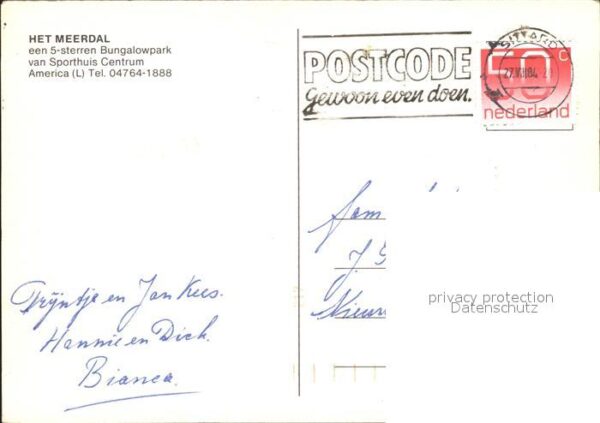 HET MEERDAL
een 5-sterren Bungalowpark
van Sporthuis Centrum
America (L) Tel. 04764-1888
POSTCODE
Gewoon even doen.
SITTARD
50 c
nederland
Fam
J
Nieuw
privacy protection
Datenschutz
Trijntje en Jan Kees.
Hannie en Dick.
Bianca.